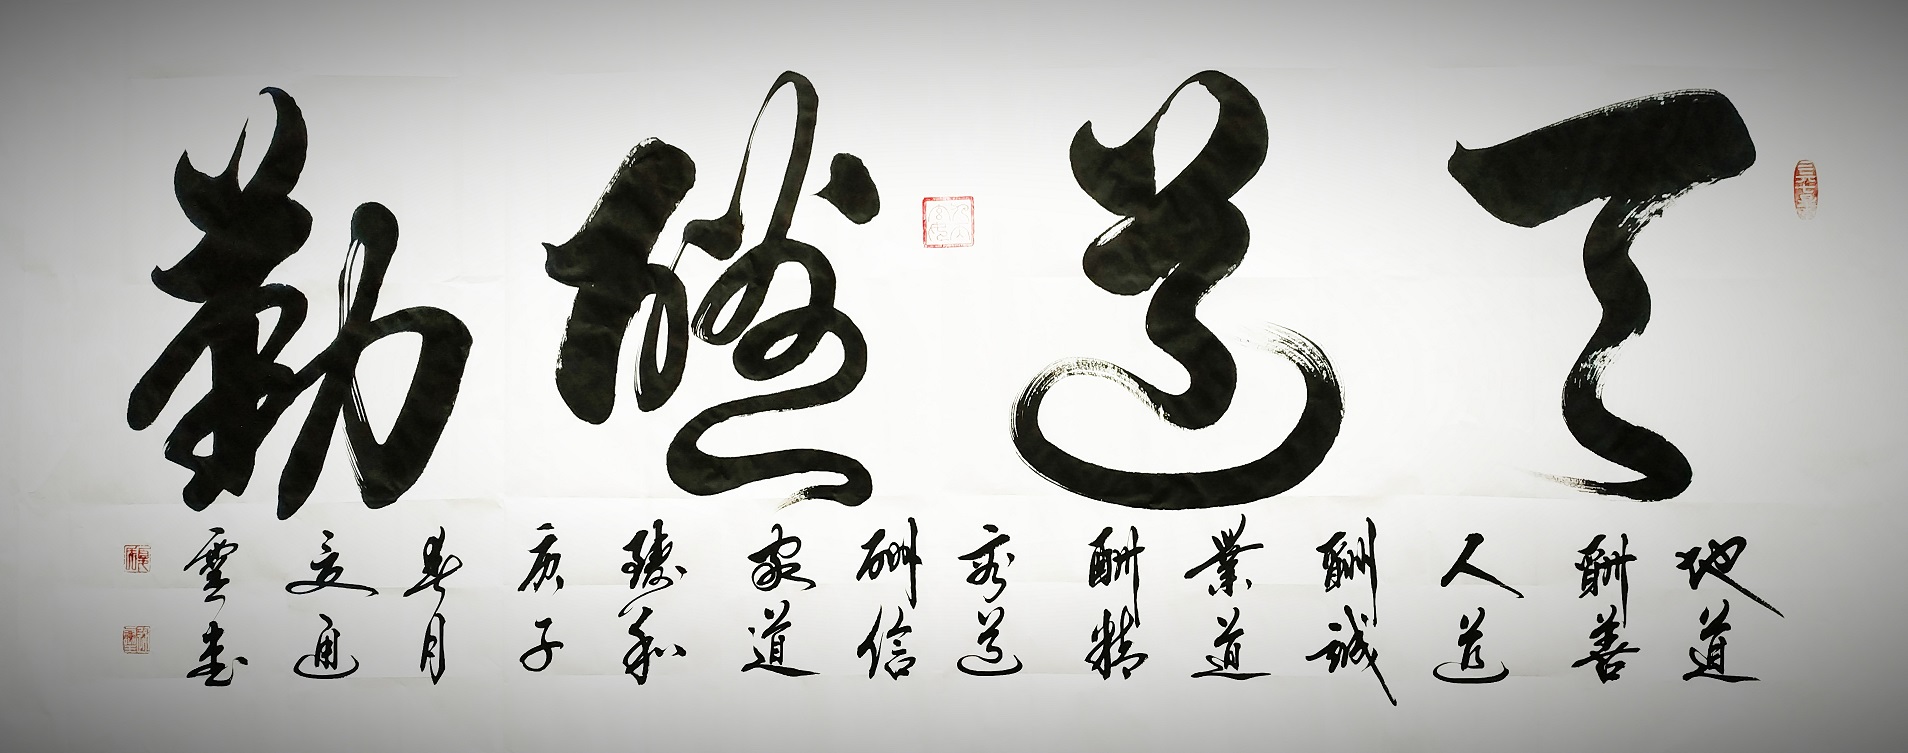 天道酬勤
地道
酬善
人道
酬誠
業道
酬精
商道
酬信
家道
臻和
庚子
春月
通
雲書